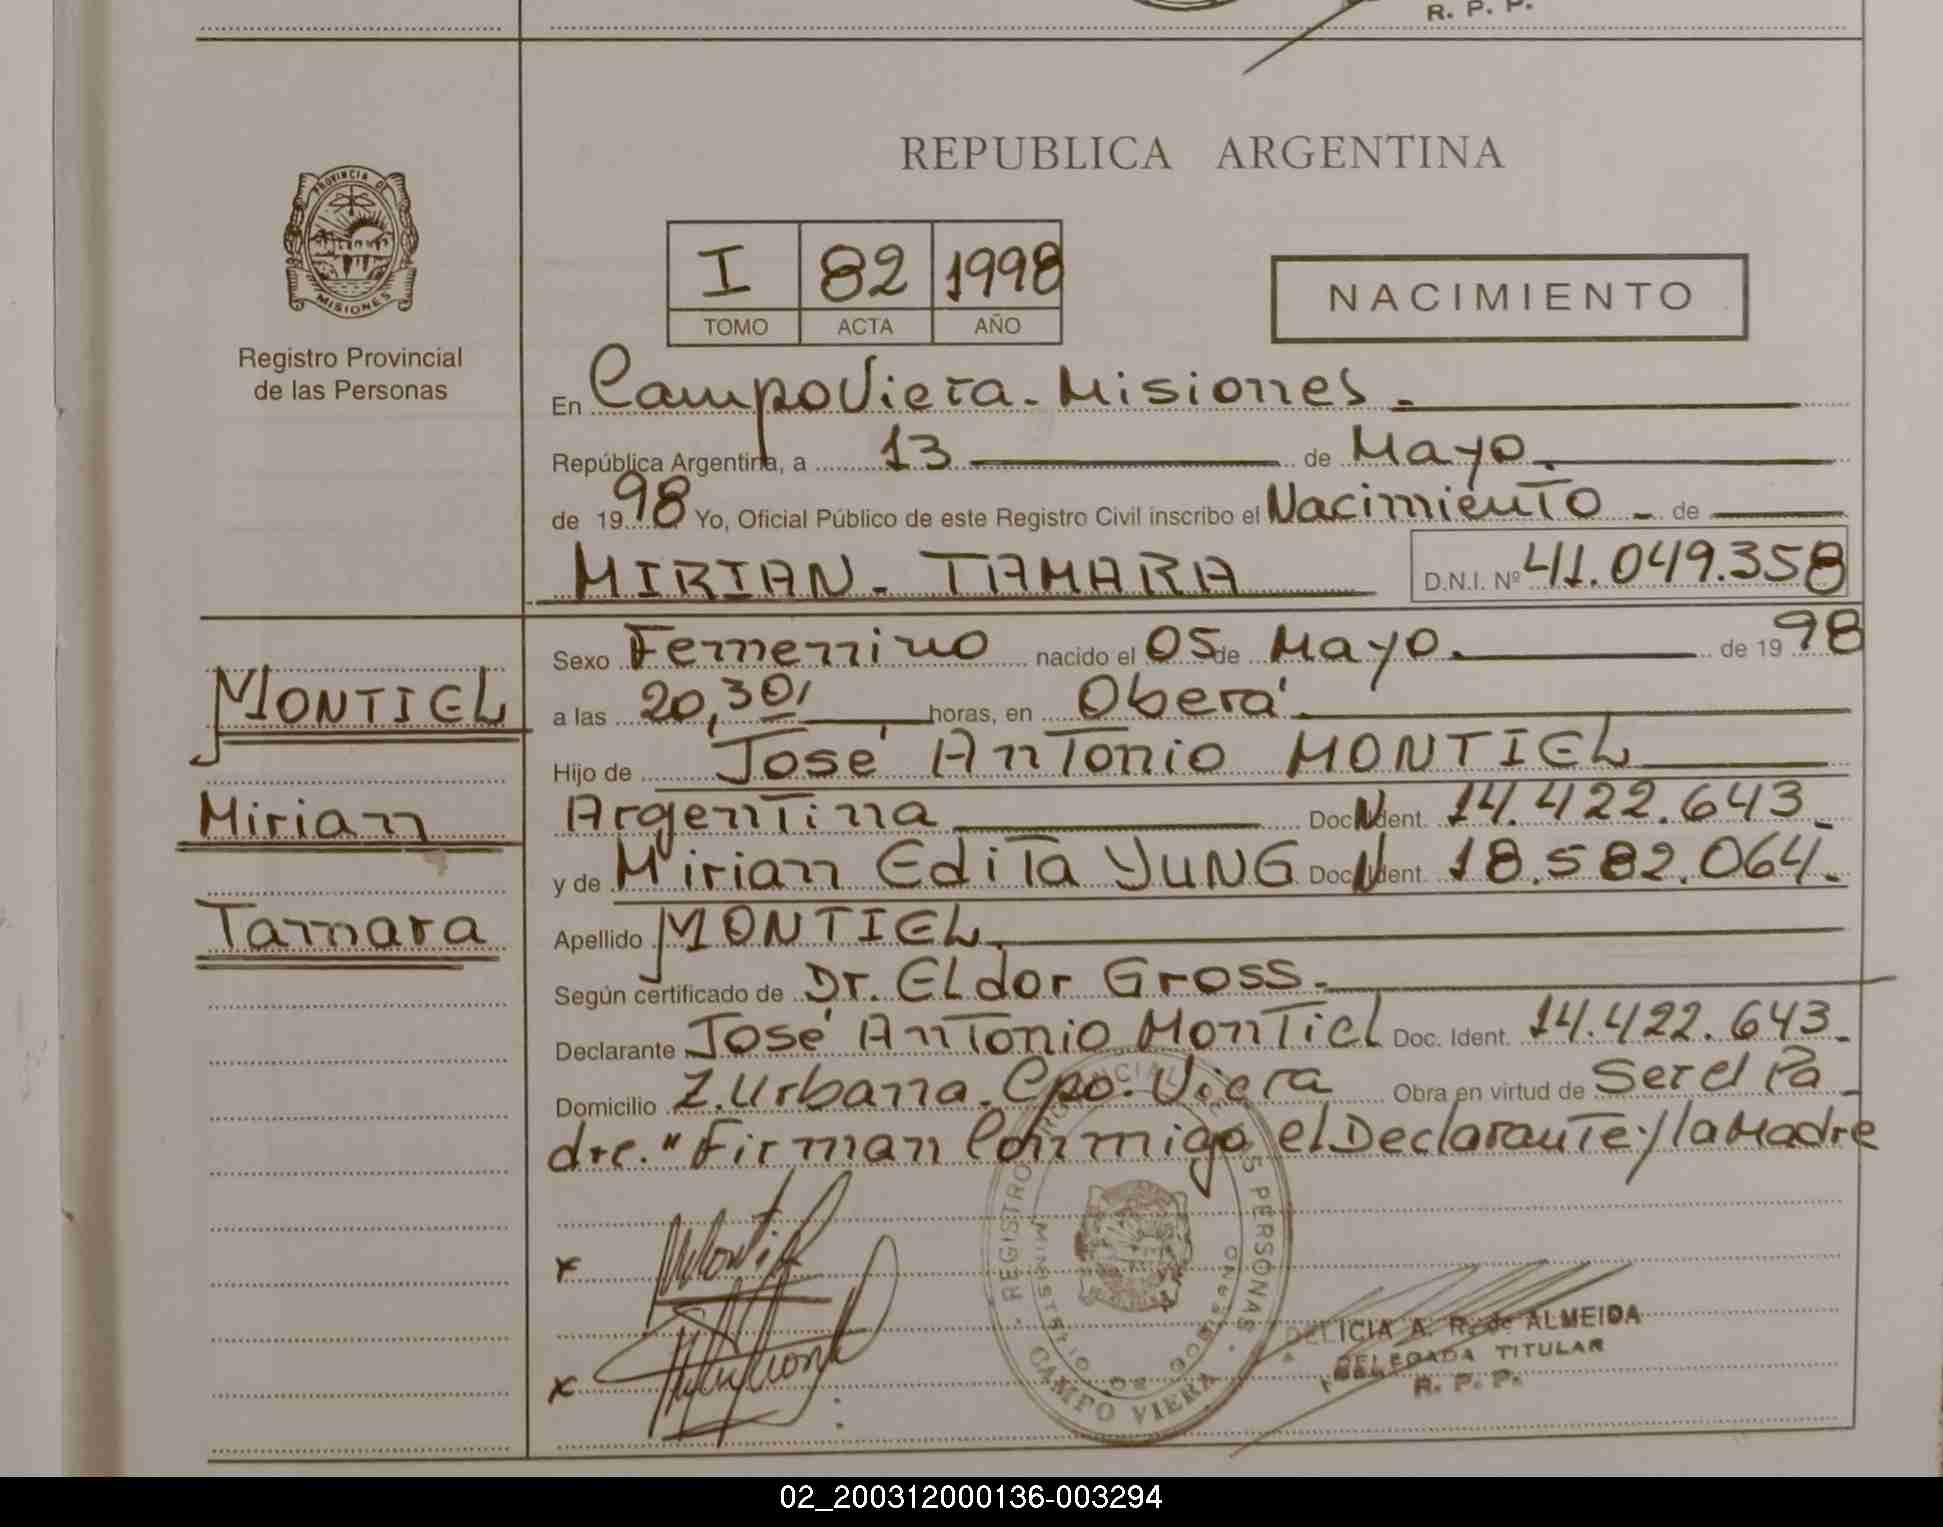 R. P. P.
PROVINCIA DE
MISIONES
Registro Provincial
de las Personas
REPUBLICA ARGENTINA
I 82 1998
TOMO ACTA AÑO
NACIMIENTO
En Campo Viera - Misiones.
República Argentina, a 13 de Mayo.
de 1998 Yo, Oficial Público de este Registro Civil inscribo el Nacimiento - de
MIRIAN - TAMARA D.N.I. Nº 41.049.358
MONTIEL
Mirian
Tamara
Sexo Femenino nacido el 05 de Mayo. de 1998
a las 20,30, horas, en Oberá
Hijo de José Antonio MONTIEL
Argentina Doc. Ident. 14.422.643.
y de Mirian Edita YUNG Doc. Ident. 18.582.064.
Apellido MONTIEL
Según certificado de Dr. Eldor Gross.
Declarante José Antonio Montiel Doc. Ident. 14.422.643.
Domicilio Z. Urbana. Cpo. Viera Obra en virtud de Ser el Pa-
dre. "Firman Conmigo el Declarante y la Madre
x Montiel
x
REGISTRO PROVINCIAL DE LAS PERSONAS
MINISTERIO DE GOBIERNO
CAMPO VIERA
DELICIA A. R. de ALMEIDA
DELEGADA TITULAR
R. P. P.
02_200312000136-003294